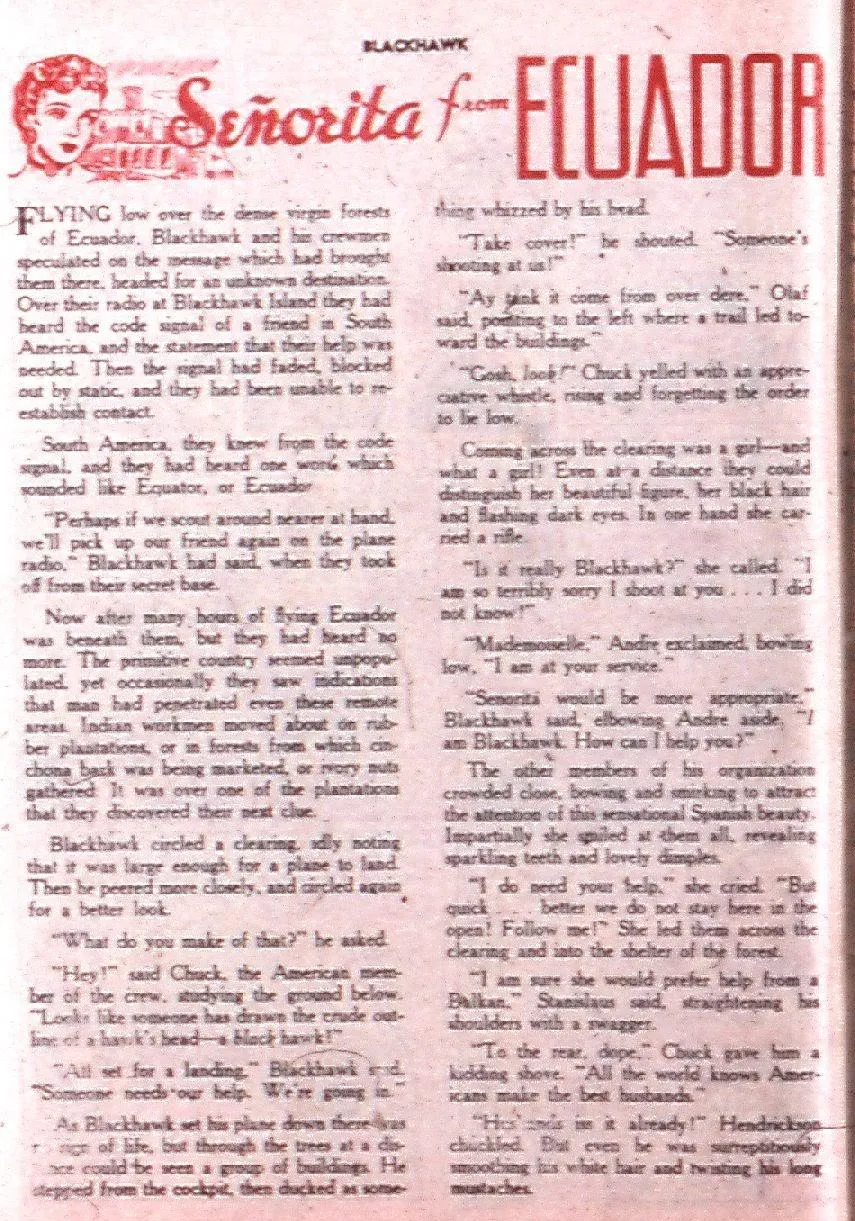 BLACKHAWK
Señorita from ECUADOR
FLYING low over the dense virgin forests
of Ecuador, Blackhawk and his crewmen
speculated on the message which had brought
them there, headed for an unknown destination.
Over their radio at Blackhawk Island they had
heard the code signal of a friend in South
America, and the statement that their help was
needed. Then the signal had faded, blocked
out by static, and they had been unable to re-
establish contact.
South America, they knew from the code
signal, and they had heard one word which
sounded like Equator, or Ecuador
"Perhaps if we scout around nearer at hand,
we'll pick up our friend again on the plane
radio," Blackhawk had said, when they took
off from their secret base.
Now after many hours of flying Ecuador
was beneath them, but they had heard no
more. The primitive country seemed unpopu-
lated, yet occasionally they saw indications
that man had penetrated even these remote
areas. Indian workmen moved about on rub-
ber plantations, or in forests from which cin-
chona bark was being marketed, or ivory nuts
gathered. It was over one of the plantations
that they discovered their next clue.
Blackhawk circled a clearing, idly noting
that it was large enough for a plane to land.
Then he peered more closely, and circled again
for a better look.
"What do you make of that?" he asked.
"Hey!" said Chuck, the American mem-
ber of the crew, studying the ground below.
"Looks like someone has drawn the crude out-
line of a hawk's head—a black hawk!"
"All set for a landing," Blackhawk said.
"Someone needs our help. We're going in."
As Blackhawk set his plane down there was
sign of life, but through the trees at a dis-
could be seen a group of buildings. He
stepped from the cockpit, then ducked as some-
thing whizzed by his head.
"Take cover!" he shouted. "Someone's
shooting at us!"
"Ay tank it come from over dere," Olaf
said, pointing to the left where a trail led to-
ward the buildings."
"Gosh, look!" Chuck yelled with an appre-
ciative whistle, rising and forgetting the order
to lie low.
Coming across the clearing was a girl—and
what a girl! Even at a distance they could
distinguish her beautiful figure, her black hair
and flashing dark eyes. In one hand she car-
ried a rifle.
"Is it really Blackhawk?" she called. "I
am so terribly sorry I shoot at you . . . I did
not know!"
"Mademoiselle," Andre exclaimed, bowing
low, "I am at your service."
"Senorita would be more appropriate,"
Blackhawk said, elbowing Andre aside, "I
am Blackhawk. How can I help you?"
The other members of his organization
crowded close, bowing and smirking to attract
the attention of this sensational Spanish beauty.
Impartially she smiled at them all, revealing
sparkling teeth and lovely dimples.
"I do need your help," she cried. "But
quick . . . better we do not stay here in the
open! Follow me!" She led them across the
clearing and into the shelter of the forest.
"I am sure she would prefer help from a
Balkan," Stanislaus said, straightening his
shoulders with a swagger.
"To the rear, dope," Chuck gave him a
kidding shove. "All the world knows Amer-
icans make the best husbands."
iss it already!" Hendrickson
chuckled. But even he was surreptitiously
smoothing his white hair and twisting his long
mustaches.